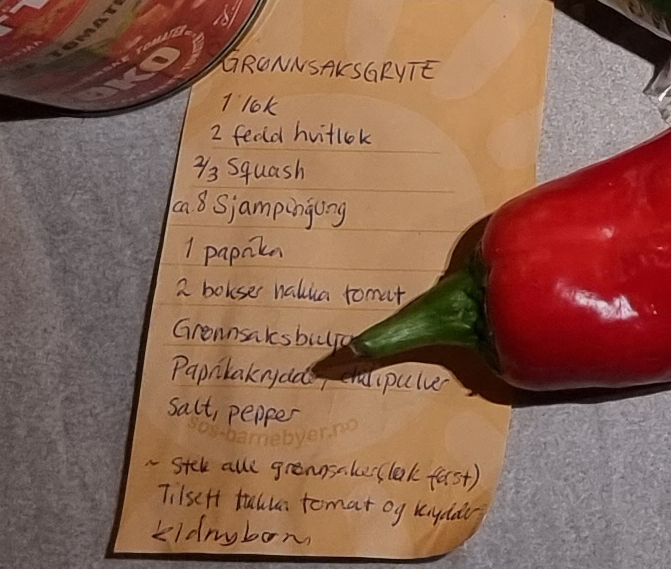 TOMATE
ØKO
GRØNNSAKSGRYTE
1 løk
2 fedd hvitløk
2/3 Squash
ca. 8 Sjampinjong
1 paprika
2 bokser hakka tomat
Grønnsaksbulj
Paprikakrydd, chilipulver
Salt, pepper
sos-barnebyer.no
~ Stek alle grønnsaker (løk først)
Tilsett hakka tomat og krydder